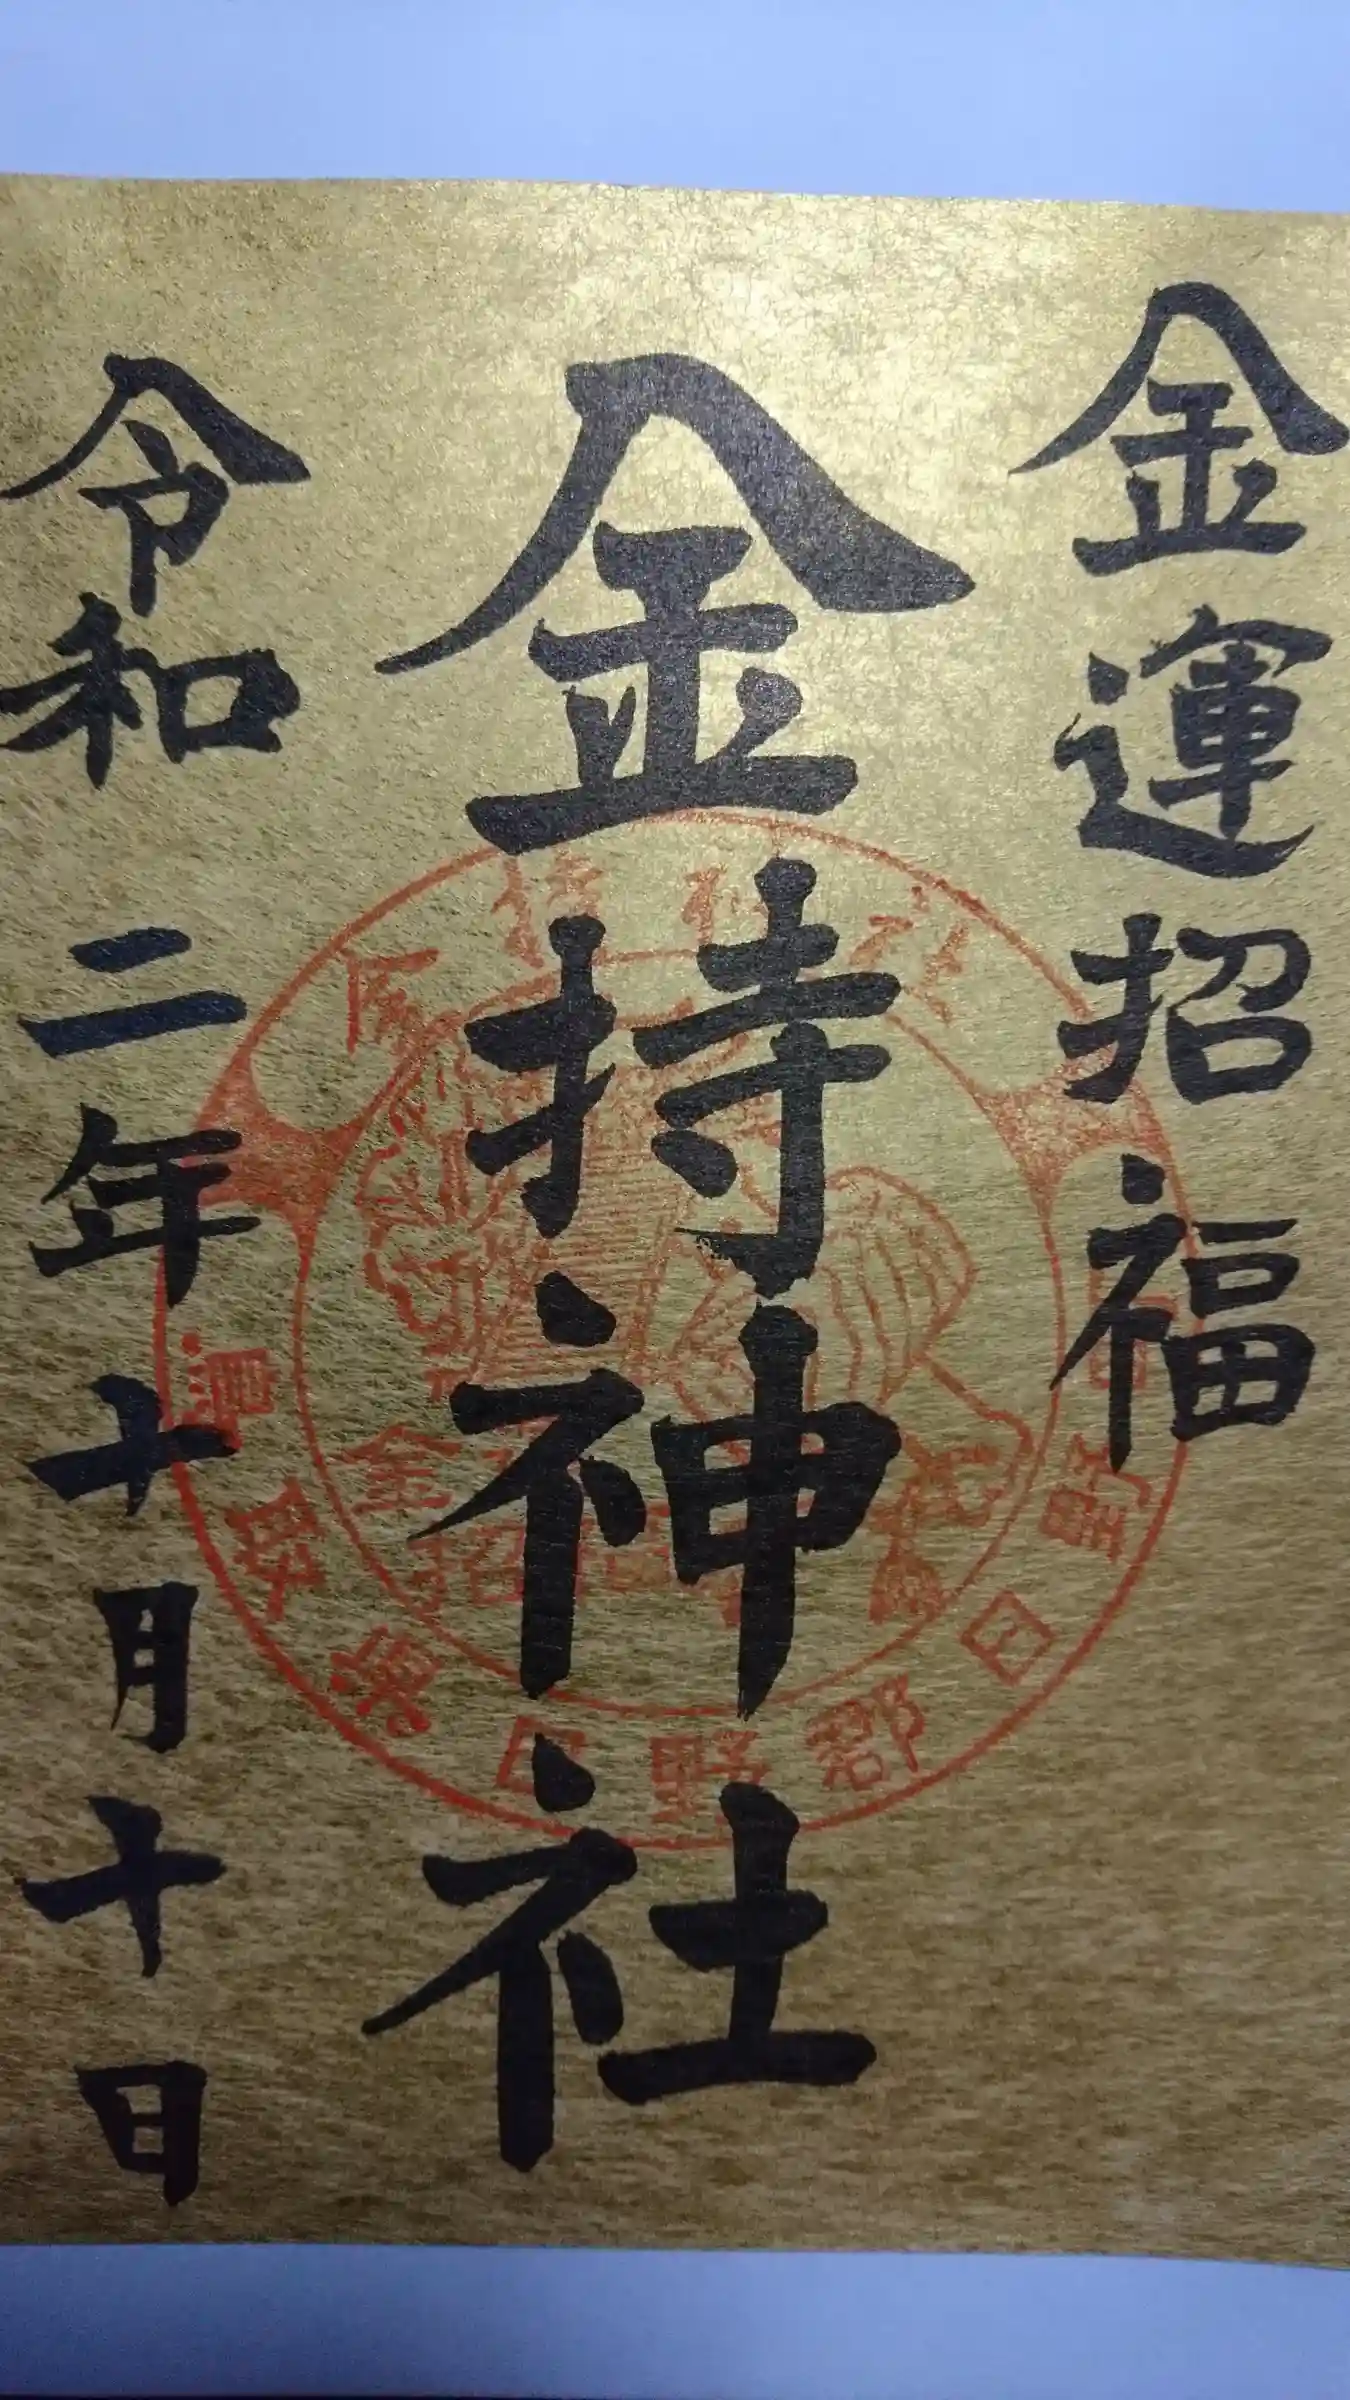 金運招福
金持神社
令和二年十月十日